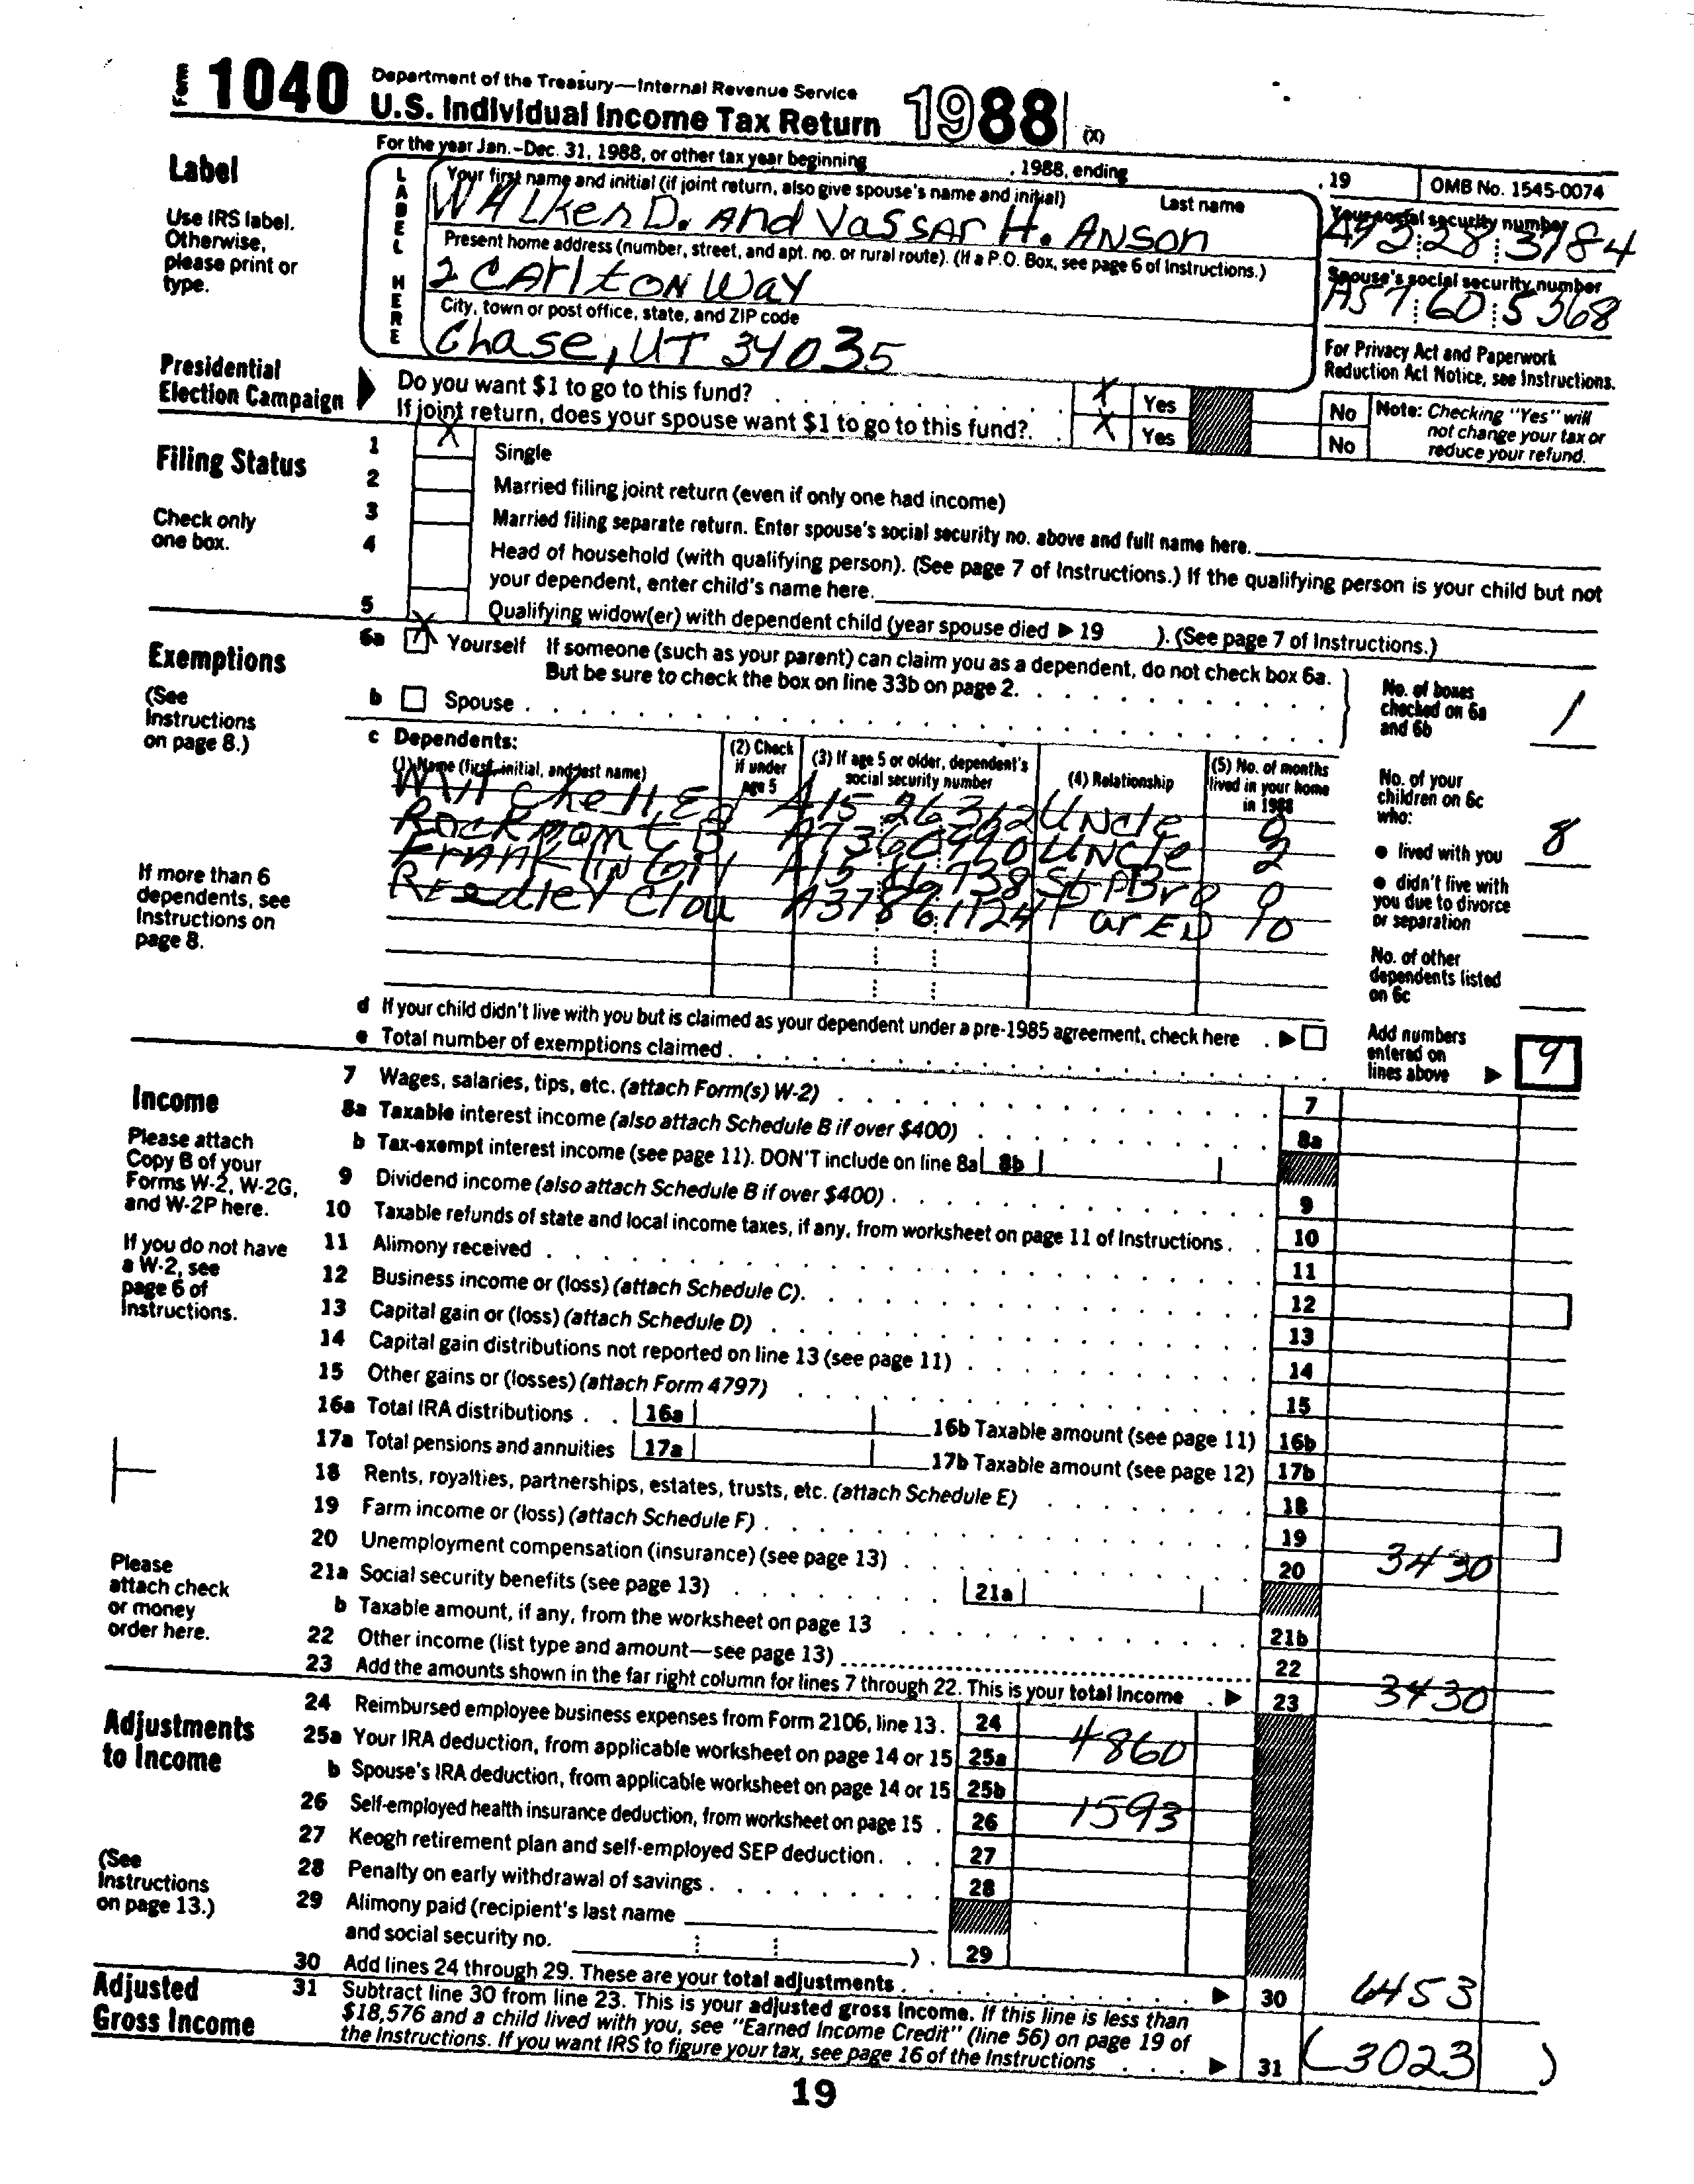 Form 1040 Department of the Treasury—Internal Revenue Service
U.S. Individual Income Tax Return 1988 (X)
For the year Jan.–Dec. 31, 1988, or other tax year beginning , 1988, ending , 19 OMB No. 1545-0074
Label
Use IRS label.
Otherwise,
please print or
type.
LABEL HERE
Your first name and initial (if joint return, also give spouse's name and initial) Last name
WALKER D. AND VASSAR H. ANSON
Your social security number
A92 28 3184
Present home address (number, street, and apt. no. or rural route). (If a P.O. Box, see page 6 of Instructions.)
2 CARlTON WAY
Spouse's social security number
A57 60 5368
City, town or post office, state, and ZIP code
Chase, UT 34035
For Privacy Act and Paperwork
Reduction Act Notice, see Instructions.
Presidential
Election Campaign
Do you want $1 to go to this fund? X Yes No
If joint return, does your spouse want $1 to go to this fund? X Yes No
Note: Checking "Yes" will
not change your tax or
reduce your refund.
Filing Status
Check only
one box.
1 X Single
2 Married filing joint return (even if only one had income)
3 Married filing separate return. Enter spouse's social security no. above and full name here.
4 Head of household (with qualifying person). (See page 7 of Instructions.) If the qualifying person is your child but not
your dependent, enter child's name here.
5 Qualifying widow(er) with dependent child (year spouse died ▶ 19 ). (See page 7 of Instructions.)
Exemptions
(See
Instructions
on page 8.)
6a X Yourself If someone (such as your parent) can claim you as a dependent, do not check box 6a.
But be sure to check the box on line 33b on page 2.
b Spouse
No. of boxes
checked on 6a
and 6b 1
c Dependents:
(1) Name (first, initial, and last name)
(2) Check
if under
age 5
(3) If age 5 or older, dependent's
social security number
(4) Relationship
(5) No. of months
lived in your home
in 1988
UNcle 0
UNcle 2
0
REEdlEY Clou 10
If more than 6
dependents, see
Instructions on
page 8.
No. of your
children on 6c
who:
● lived with you 8
● didn't live with
you due to divorce
or separation
No. of other
dependents listed
on 6c
d If your child didn't live with you but is claimed as your dependent under a pre-1985 agreement, check here ▶
e Total number of exemptions claimed
Add numbers
entered on
lines above ▶ 9
Income
Please attach
Copy B of your
Forms W-2, W-2G,
and W-2P here.
If you do not have
a W-2, see
page 6 of
Instructions.
Please
attach check
or money
order here.
7 Wages, salaries, tips, etc. (attach Form(s) W-2) 7
8a Taxable interest income (also attach Schedule B if over $400) 8a
b Tax-exempt interest income (see page 11). DON'T include on line 8a 8b
9 Dividend income (also attach Schedule B if over $400) 9
10 Taxable refunds of state and local income taxes, if any, from worksheet on page 11 of Instructions 10
11 Alimony received 11
12 Business income or (loss) (attach Schedule C) 12
13 Capital gain or (loss) (attach Schedule D) 13
14 Capital gain distributions not reported on line 13 (see page 11) 14
15 Other gains or (losses) (attach Form 4797) 15
16a Total IRA distributions 16a 16b Taxable amount (see page 11) 16b
17a Total pensions and annuities 17a 17b Taxable amount (see page 12) 17b
18 Rents, royalties, partnerships, estates, trusts, etc. (attach Schedule E) 18
19 Farm income or (loss) (attach Schedule F) 19
20 Unemployment compensation (insurance) (see page 13) 20 3430
21a Social security benefits (see page 13) 21a
b Taxable amount, if any, from the worksheet on page 13 21b
22 Other income (list type and amount—see page 13) 22
23 Add the amounts shown in the far right column for lines 7 through 22. This is your total income ▶ 23 3430
Adjustments
to Income
(See
Instructions
on page 13.)
24 Reimbursed employee business expenses from Form 2106, line 13. 24
25a Your IRA deduction, from applicable worksheet on page 14 or 15 25a 4860
b Spouse's IRA deduction, from applicable worksheet on page 14 or 15 25b
26 Self-employed health insurance deduction, from worksheet on page 15 26 1593
27 Keogh retirement plan and self-employed SEP deduction 27
28 Penalty on early withdrawal of savings 28
29 Alimony paid (recipient's last name
and social security no. ) 29
30 Add lines 24 through 29. These are your total adjustments ▶ 30 6453
Adjusted
Gross Income
31 Subtract line 30 from line 23. This is your adjusted gross income. If this line is less than
$18,576 and a child lived with you, see "Earned Income Credit" (line 56) on page 19 of
the Instructions. If you want IRS to figure your tax, see page 16 of the Instructions ▶ 31 (3023)
19